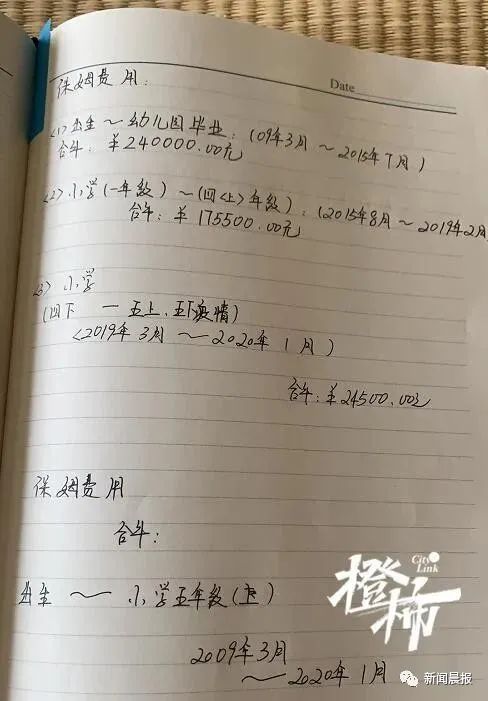 Date
保姆费用:
<1>出生~幼儿园毕业:(09年3月~2015年7月)
合计:¥240000.00元
<2>小学(一年级)~(四<上>年级):(2015年8月~2019年2月
合计:¥175500.00元
3>小学
(四下一五上、五下疫情)
<2019年3月~2020年1月)
合计:¥24500.00元
保姆费用
合计:
出生~小学五年级(上)
2009年3月
~2020年1月
City Link
橙柿
新闻晨报